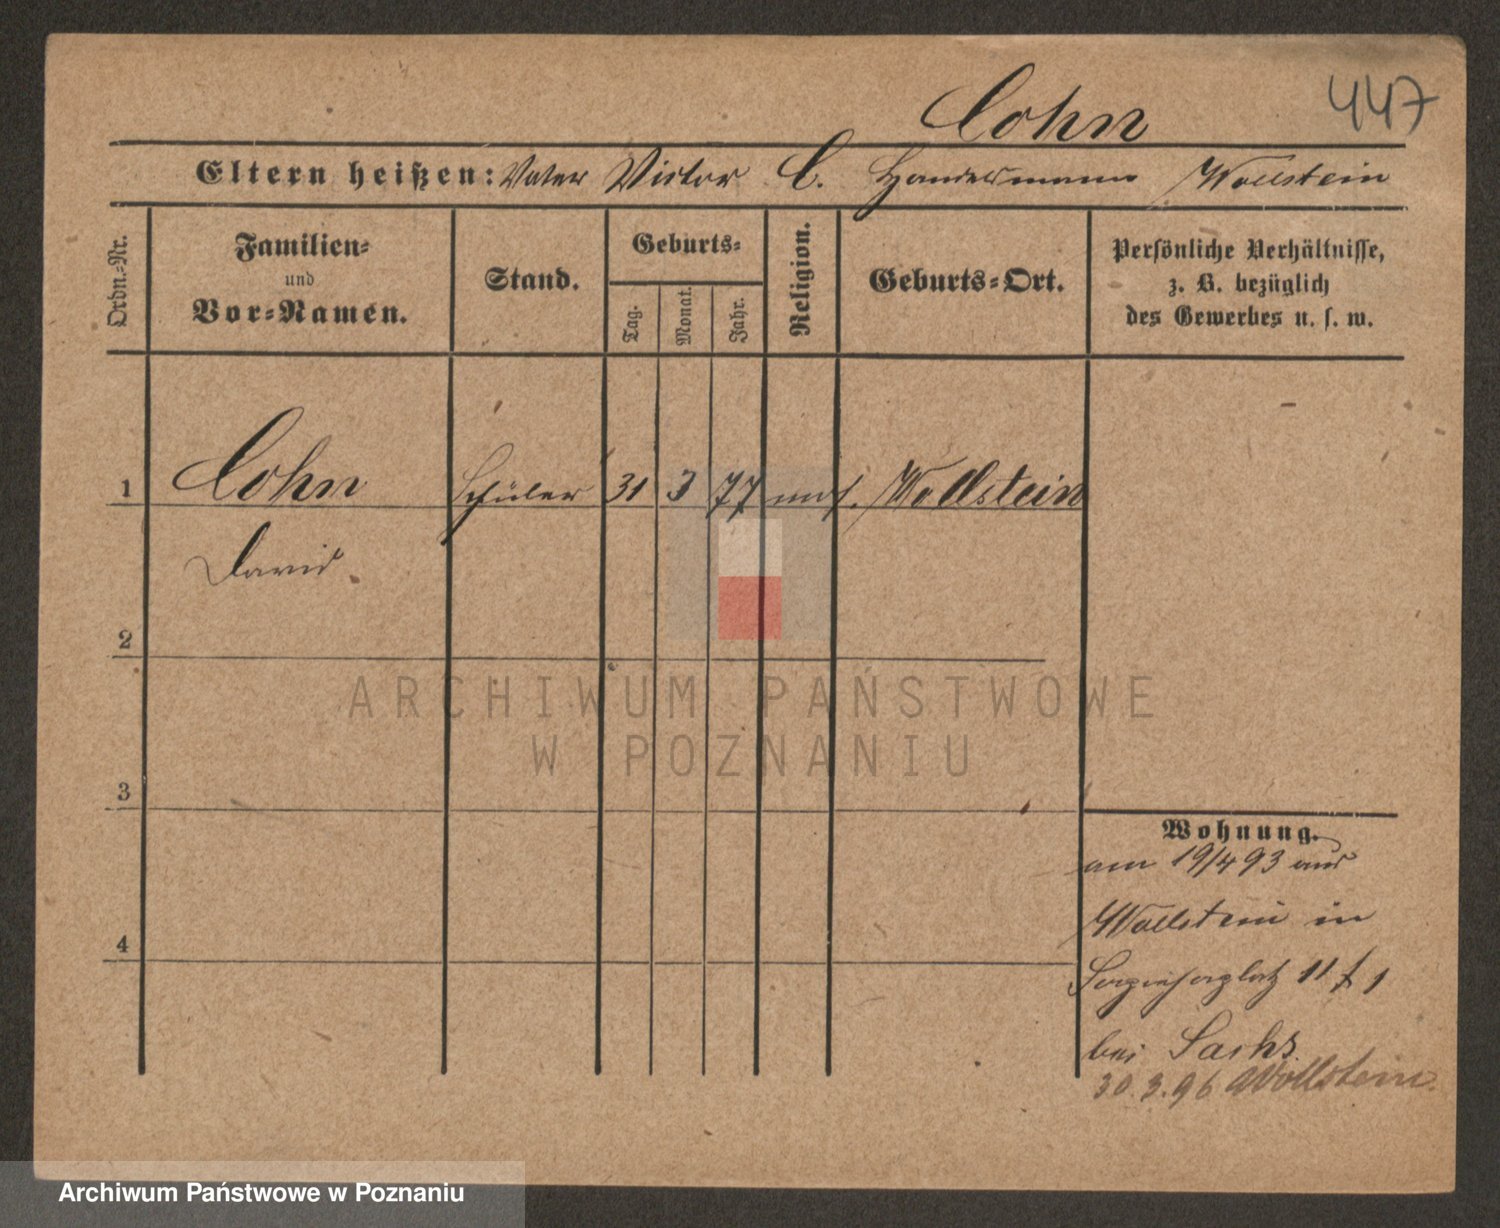 Cohn
447
Eltern heißen: Vater Victor C. Handelsmann Wollstein
Ordn.-Nr.
Familien-
und
Vor-Namen.
Stand.
Geburts-
Tag.
Monat.
Jahr.
Religion.
Geburts-Ort.
Persönliche Verhältnisse,
z. B. bezüglich
des Gewerbes u. s. w.
1 Cohn Schüler 31 3 77 mos. Wollstein
David
2
3
4
Wohnung.
am 19/4 93 aus
Wollstein in
Sapiehaplatz 11 1
bei Sachs
30.3.96 Wollstein.
ARCHIWUM PAŃSTWOWE
W POZNANIU
Archiwum Państwowe w Poznaniu